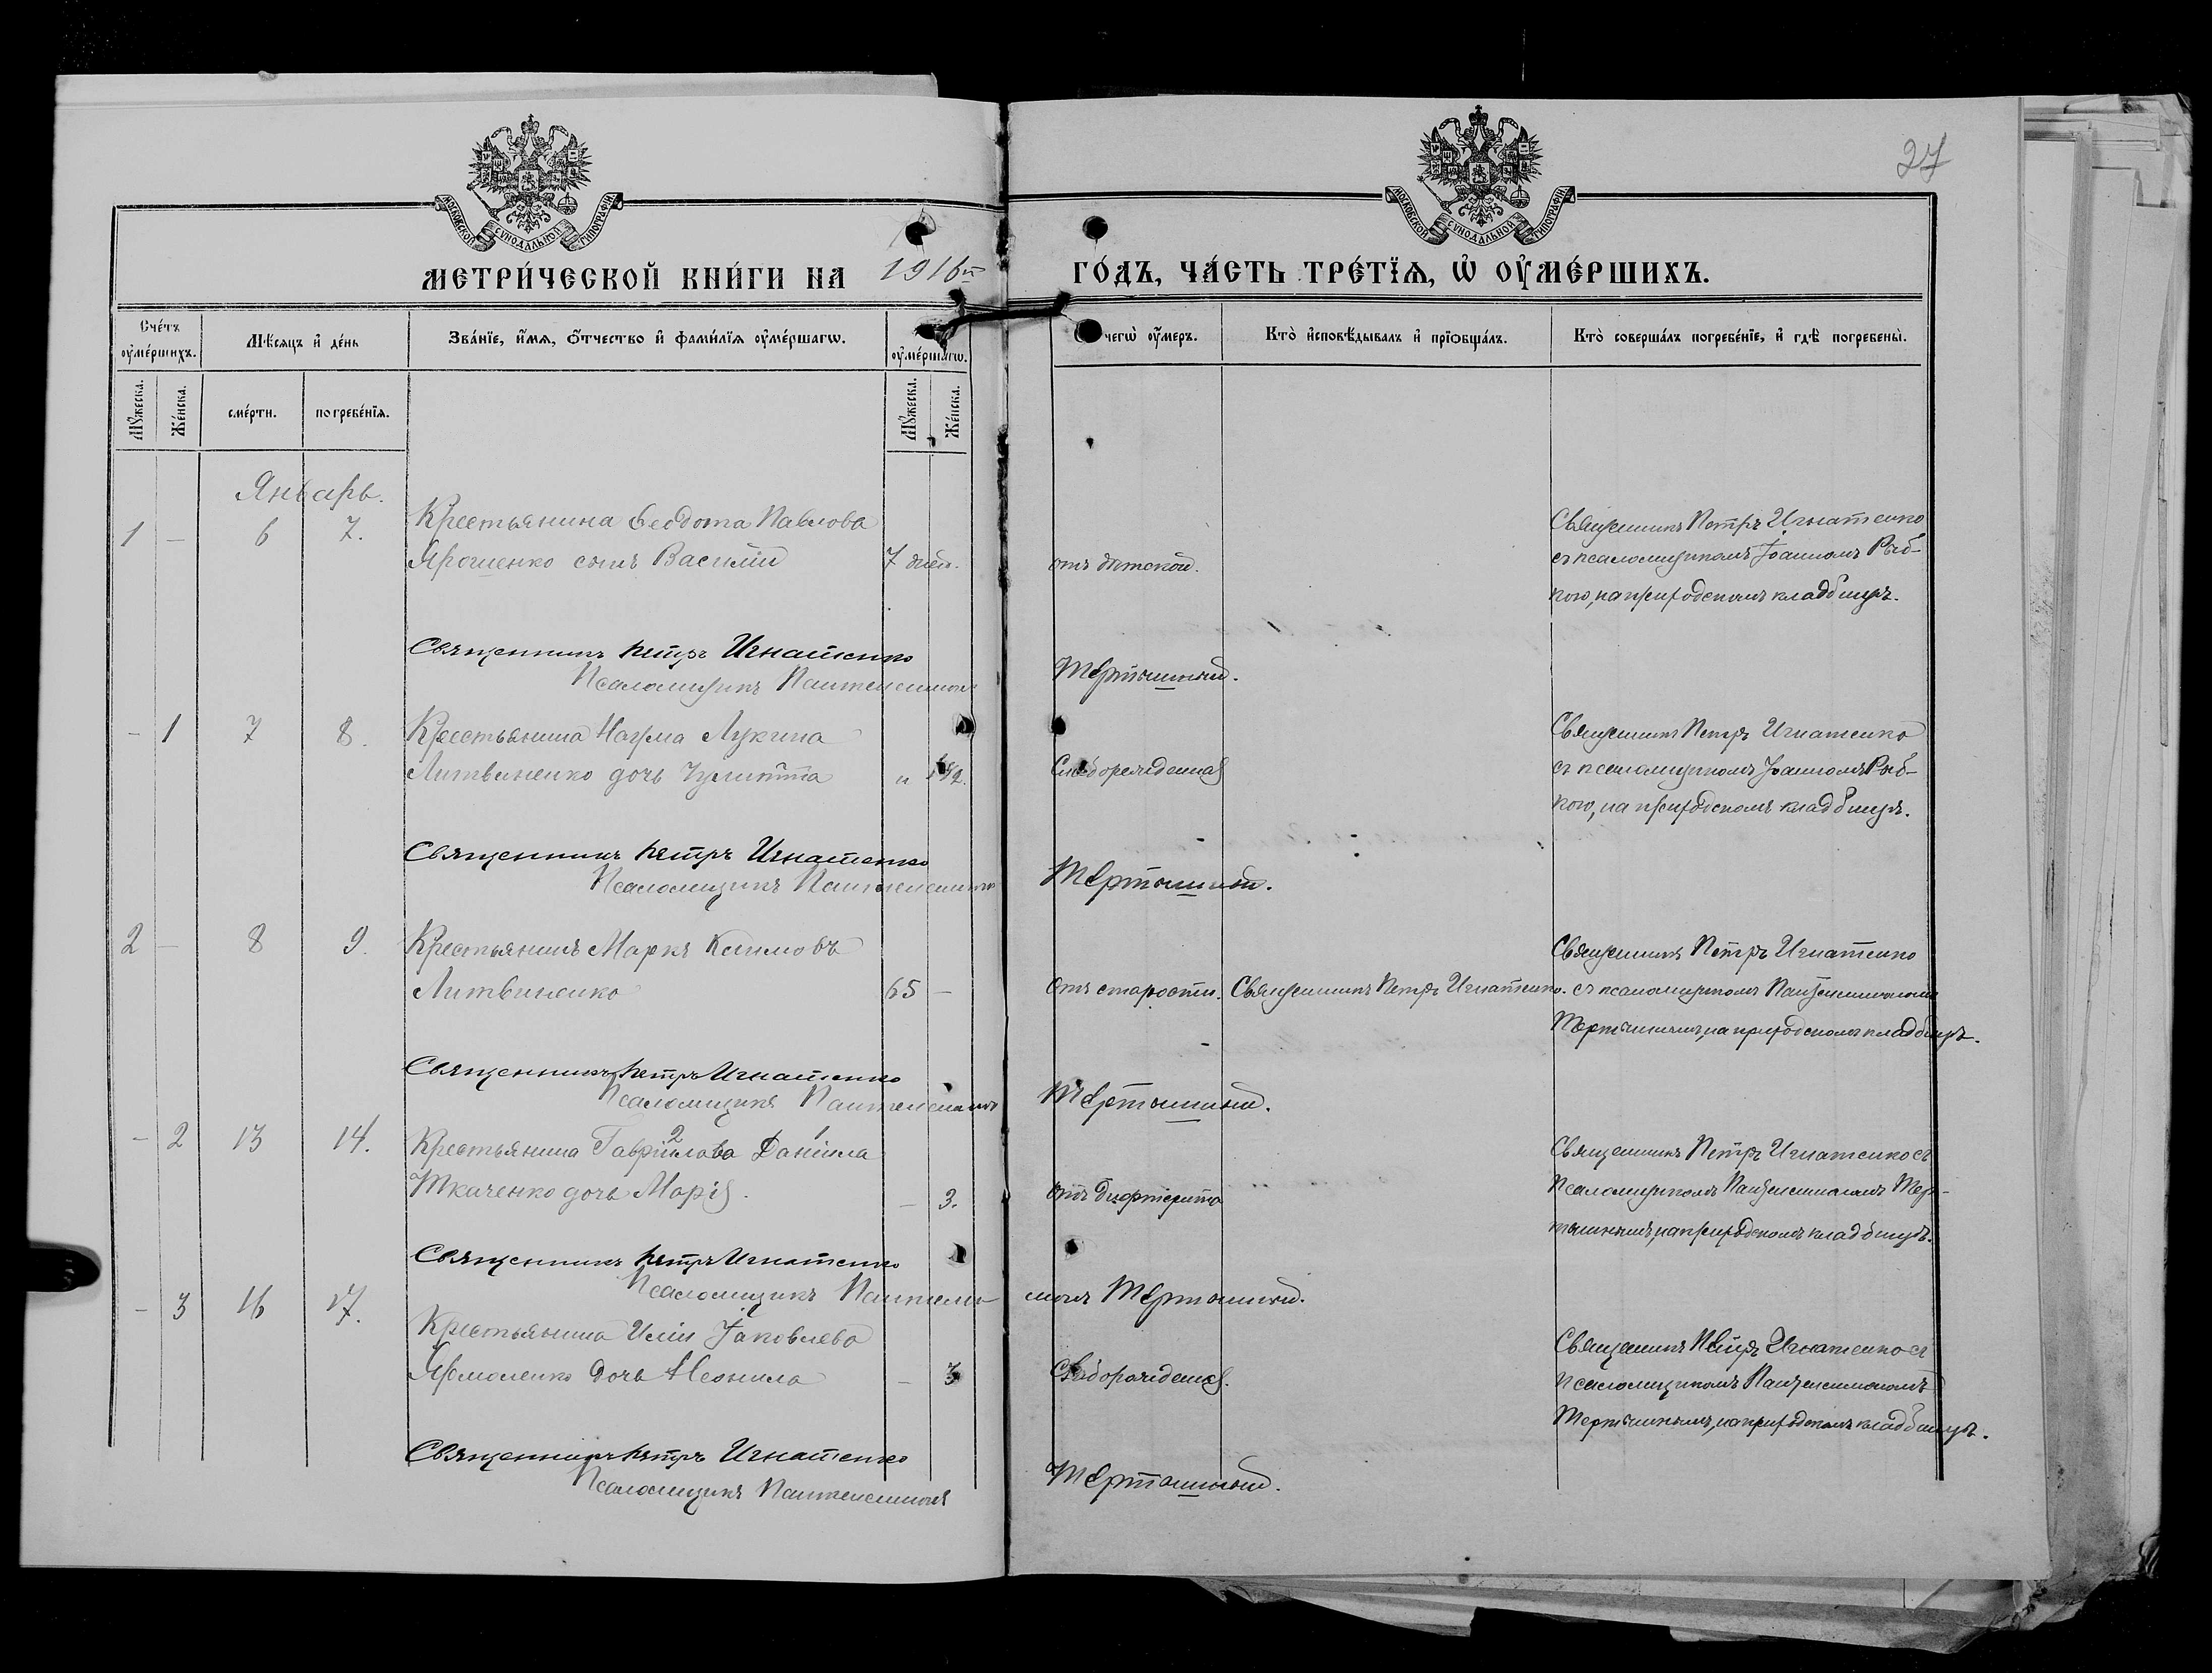 27
МОСКОВСКОЙ СУНОДАЛЬНОЙ ТИПОГРАФІИ
МОСКОВСКОЙ СУНОДАЛЬНОЙ ТИПОГРАФІИ
МЕТРИ́ЧЕСКОЙ КНИ́ГИ НА 1916й ГО́ДЪ, ЧА́СТЬ ТРЕ́ТЇѦ, Ѡ҆ ОУ҆МЕ́РШИХЪ.
Сче́тъ оу҆ме́ршихъ.
Мѣ́сяцъ и҆ де́нь
Зва́нїе, и҆́мѧ, ѻ҆́тчество и҆ фамѝлїѧ оу҆ме́ршагѡ.
оу҆ме́ршагѡ.
чегѡ̀ оу҆́меръ.
Кто̀ и҆сповѣ́дывалъ и҆ прїѡбща́лъ.
Кто̀ соверша́лъ погребе́нїе, и҆ гдѣ̀ погребены̀.
Мꙋ́жеска.
Же́нска.
сме́рти.
погребе́нїѧ.
Мꙋ́жеска.
Же́нска.
Январь.
1 — 6 7. Крестьянина Ѳеодота Павлова
Ярошенко сынъ Василій 7 дней. отъ дѣтской.
Священникъ Петръ Игнатенко
съ псаломщикомъ Іоанномъ Рыб-
кою, на приходскомъ кладбищѣ.
Священникъ Петръ Игнатенко
Псаломщикъ Пантелеимонъ Тертышный.
— 1 7 8. Крестьянина Наума Лукина
Литвиненко дочь Іулитта
Священникъ Петръ Игнатенко
съ псаломщикомъ Іоанномъ Рыб-
кою, на приходскомъ кладбищѣ.
Священникъ Петръ Игнатенко
Псаломщикъ Пантелеимонъ Тертышный.
2 — 8 9. Крестьянинъ Маркъ
Литвиненко 65 — Отъ старости. Священникъ Петръ Игнатенко.
Священникъ Петръ Игнатенко
съ псаломщикомъ Пантелеимономъ
Тертышнымъ, на приходскомъ кладбищѣ.
Священникъ Петръ Игнатенко
Псаломщикъ Пантелеимонъ Тертышный.
— 2 13 14. Крестьянина Гавріилова 2 Даніила 1
Ткаченко дочь Марія. — 3. Отъ дифтерита
Священникъ Петръ Игнатенко съ
псаломщикомъ Пантелеимономъ Тер-
тышнымъ, на приходскомъ кладбищѣ.
Священникъ Петръ Игнатенко
Псаломщикъ Пантелеи- монъ Тертышный.
— 3 16 17. Крестьянина Иліи Іаковлева
Ярмоленко дочь Неонила — 3
Священникъ Петръ Игнатенко съ
псаломщикомъ Пантелеимономъ
Тертышнымъ, на приходскомъ кладбищѣ.
Священникъ Петръ Игнатенко
Псаломщикъ Пантелеимонъ Тертышный.